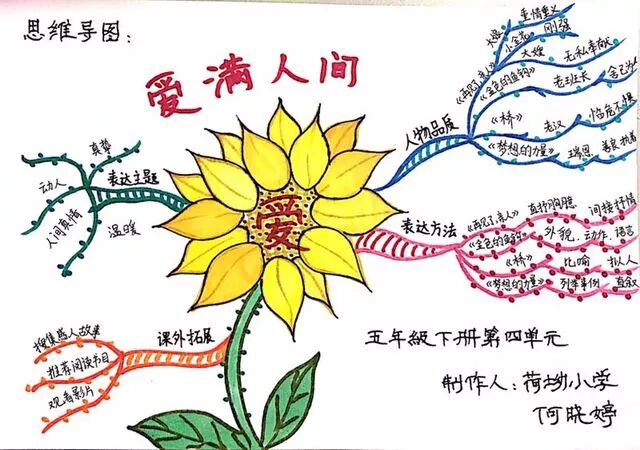 思维导图：
爱满人间
爱
表达主题
真挚
动人
人间真情
温暖
人物品质
《再见了,亲人》
大娘
重情重义
小金花
刚强
大嫂
无私奉献
《金色的鱼钩》
老班长
舍己为人
《桥》
老汉
临危不惧
《梦想的力量》
瑞恩
善良 执着
表达方法
《再见了,亲人》
直抒胸臆
间接抒情
《金色的鱼钩》
外貌、动作、语言
《桥》
比喻
拟人
《梦想的力量》
列举事例
直叙
课外拓展
搜集感人故事
推荐阅读书目
观看影片
五年级下册第四单元
制作人：荷坳小学
何晓婷